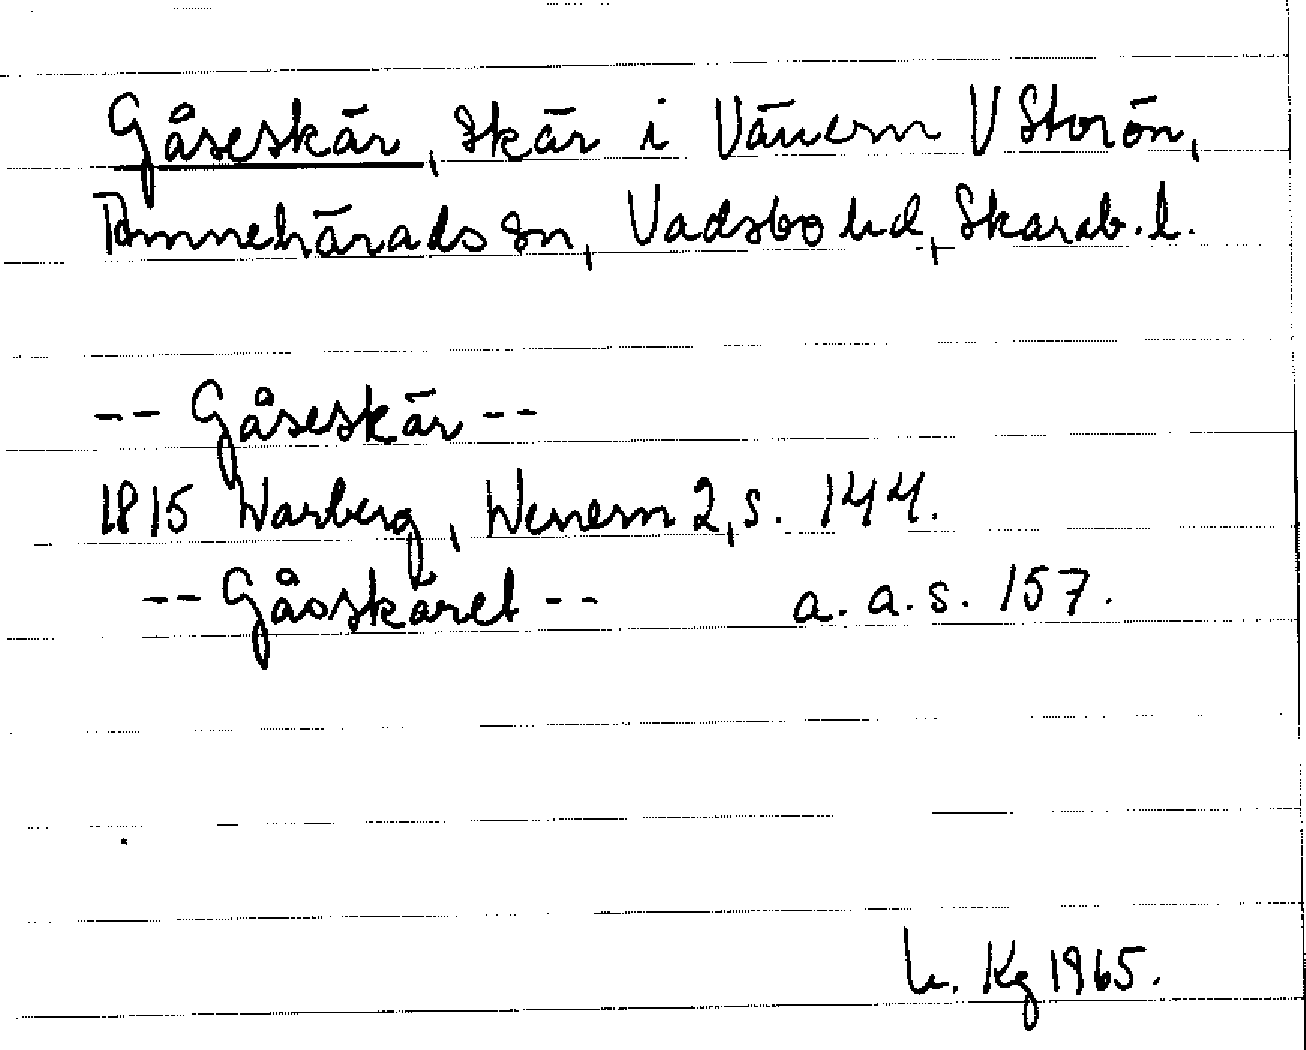 Gåseskär, Skär i Vänern V Storön,
Amnehärads sn, Vadsbo hd, Skarab. l.
-- Gåseskär --
1815 Warberg, Wenern 2, s. 144.
-- Gåsskäret -- a. a. s. 157.
Kg 1965.